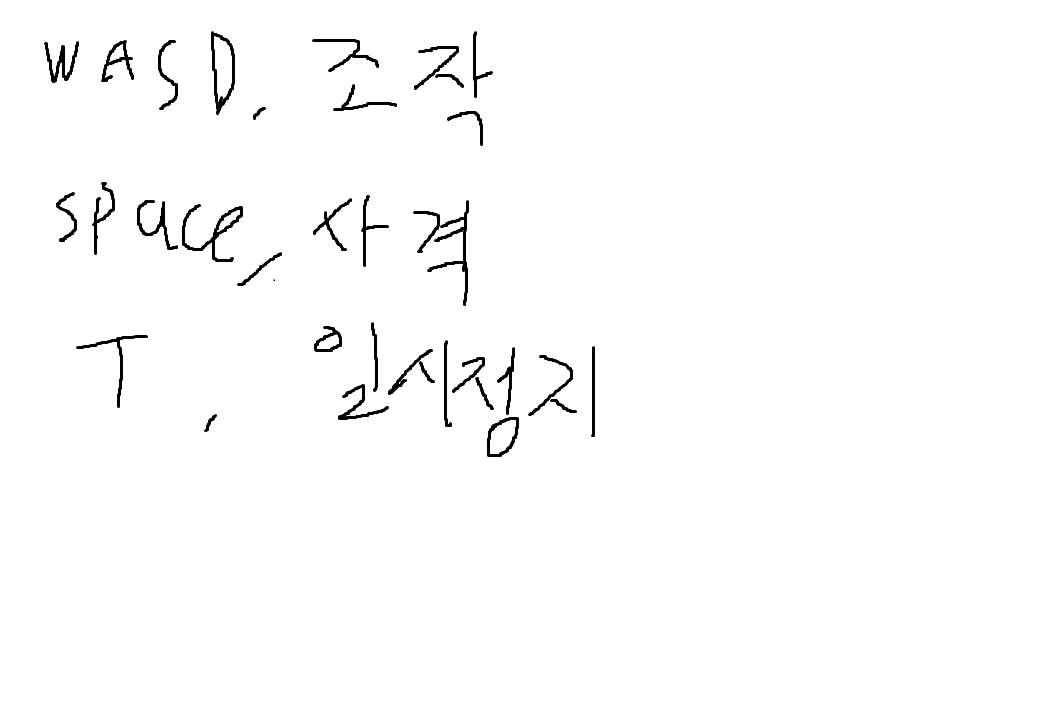 WASD, 조작
space, 사격
T, 일시정지